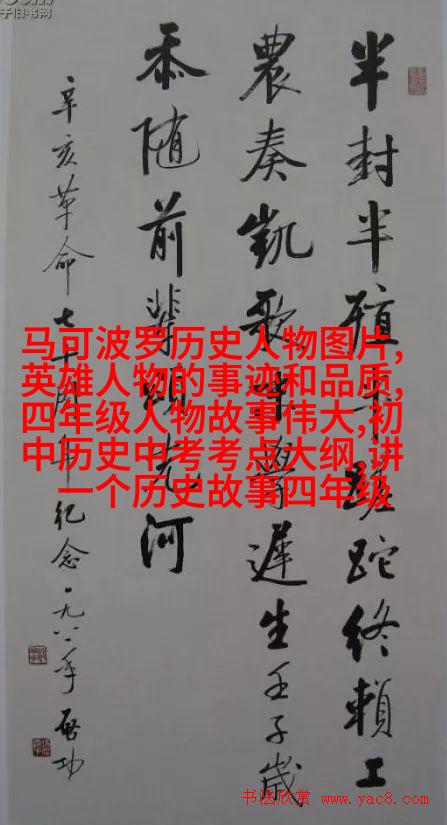 子旧书网
半封半殖半蹉跎終賴工
農奏凱歌末學遲生壬子歲
忝随前輩頌先河
辛亥革命七十周年纪念一九八一年 啓功
马可波罗历史人物图片,
英雄人物的事迹和品质,
四年级人物故事伟大,初
中历史中考考点大纲,讲
一个历史故事四年级
书法欣赏 www.yac8.com